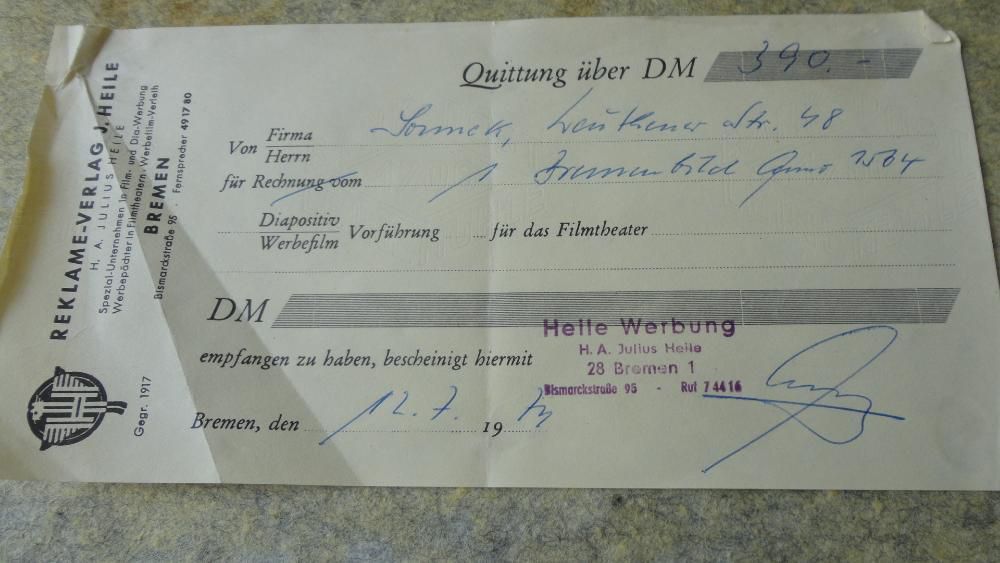 REKLAME-VERLAG J. HEILE
H. A. JULIUS HEILE
Spezial-Unternehmen in Film- und Dia-Werbung
Werbepächter in Filmtheatern · Werbefilm-Verleih
BREMEN
Bismarckstraße 95 · Fernsprecher 49 17 80
Gegr. 1917
Quittung über DM 390.-
Von Firma
Herrn
Sonnek, Leuthener Str. 48
für Rechnung vom 1 Bremenbild Anno 1564
Diapositiv
Werbefilm
Vorführung für das Filmtheater
DM
empfangen zu haben, bescheinigt hiermit
Heile Werbung
H. A. Julius Heile
28 Bremen 1
Bismarckstraße 95 - Ruf 7 44 16
Bremen, den 12.7. 19